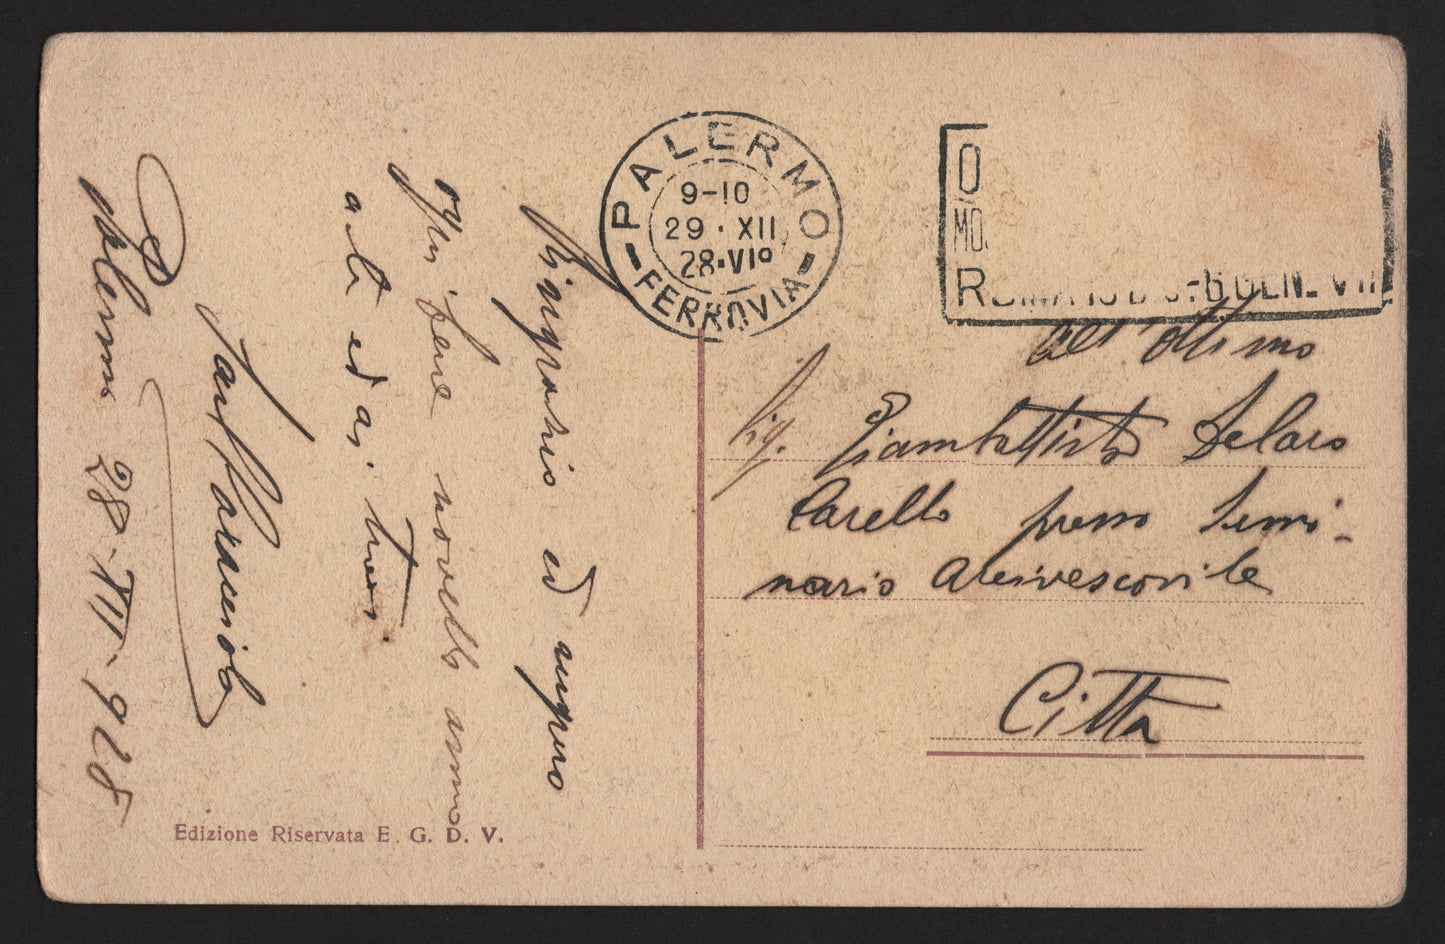 Ringrazio ed auguro
ogni bene novello anno
a lei ed ai suoi
Palermo 28-XII-928
PALERMO
9-10
29·XII
28·VIº
FERROVIA
O
MO
R
-6 GEN. VII
all'ottimo
Sig. Giambattista
Carello presso Semi-
nario Arcivescovile
Città
Edizione Riservata E. G. D. V.